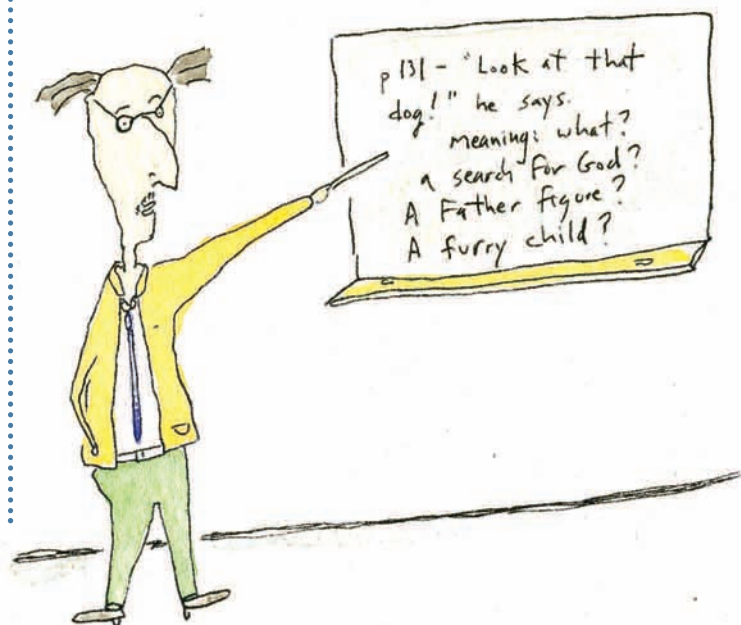 p 131 - "Look at that
dog!" he says.
meaning: what?
a search for God?
A Father figure?
A furry child?